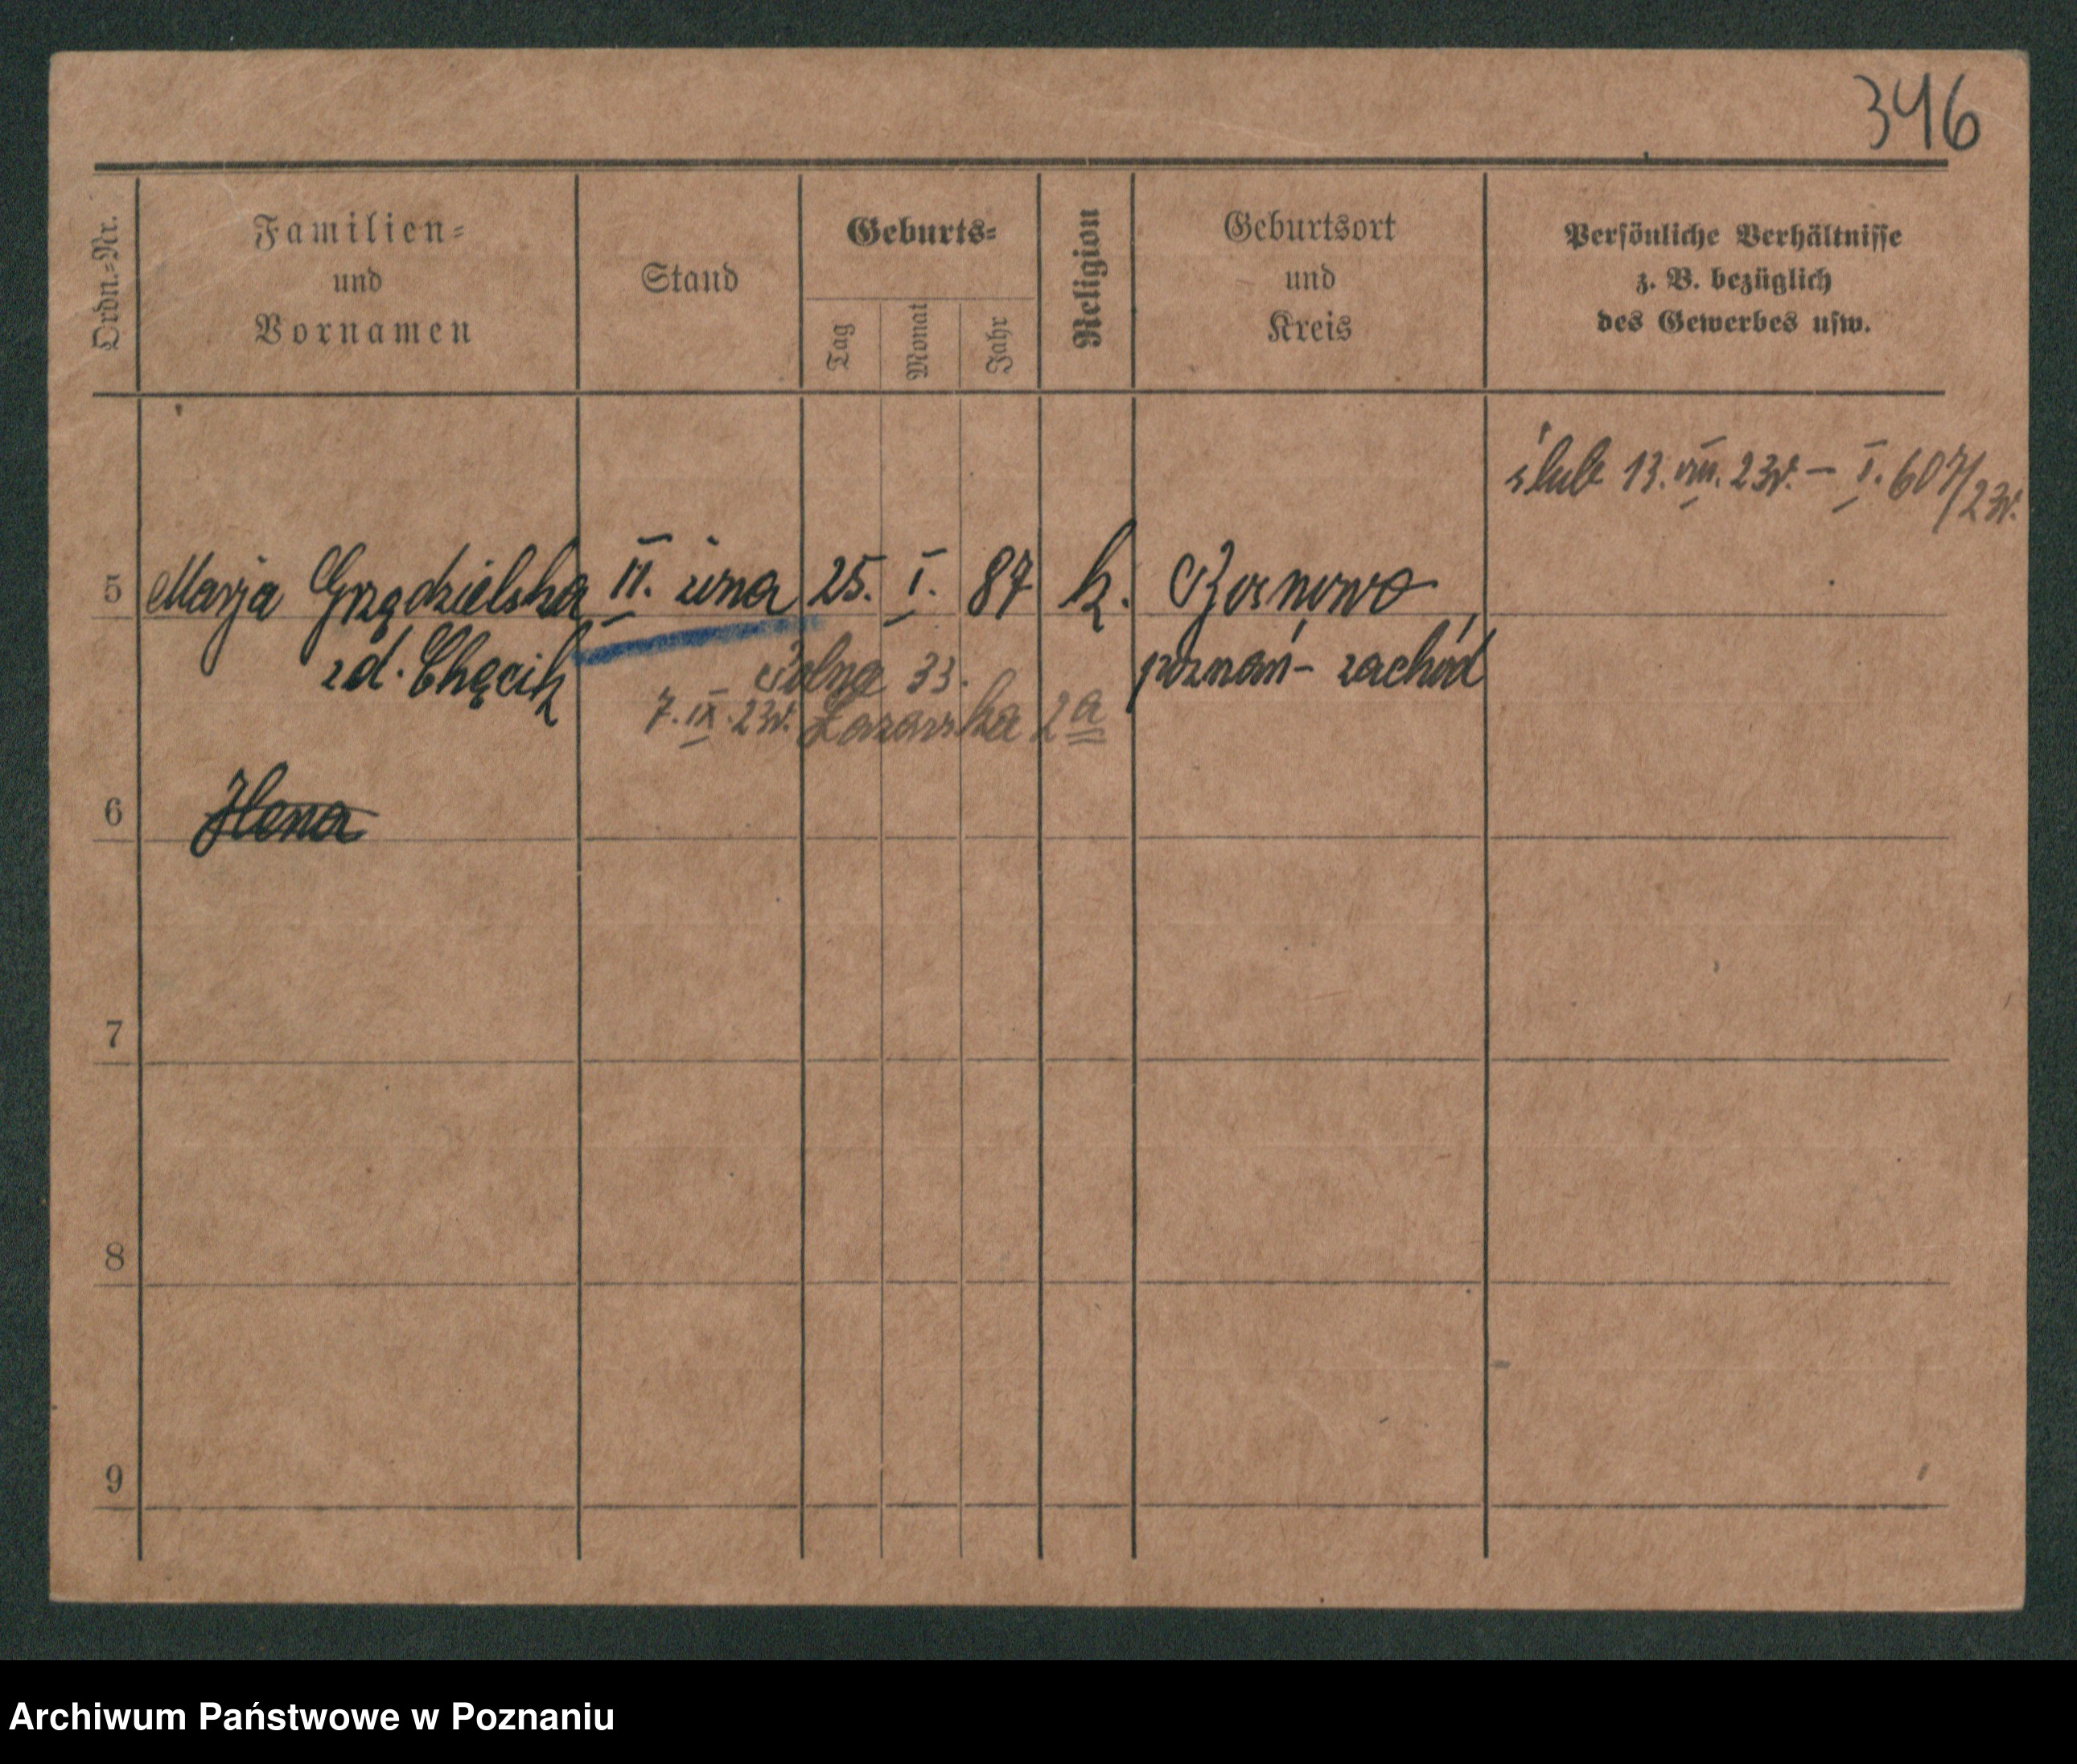 346
Ordn.-Nr.
Familien-
und
Vornamen
Stand
Geburts-
Tag
Monat
Jahr
Religion
Geburtsort
und
Kreis
Persönliche Verhältnisse
z. B. bezüglich
des Gewerbes usw.
ślub 13. VIII. 23r. – I. 607/23r.
5 Marja Grządzielska II. żona 25. I. 87 k.
zd. Chęcik
poznań - zachód
Polna 33.
7. IX. 23r. Łazarska 2a
6
7
8
9
Archiwum Państwowe w Poznaniu